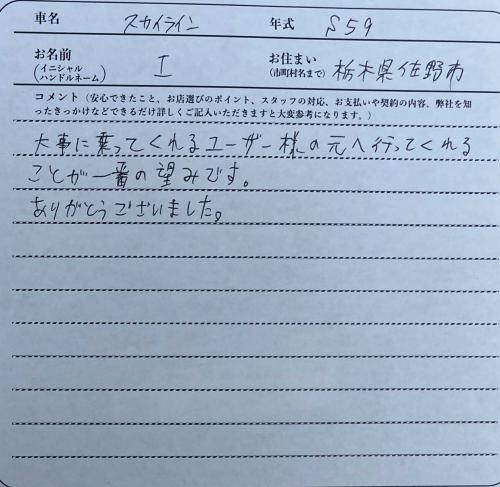 車名 スカイライン 年式 S59
お名前 (イニシャル ハンドルネーム) I お住まい (市町村名まで) 栃木県佐野市
コメント（安心できたこと、お店選びのポイント、スタッフの対応、お支払いや契約の内容、弊社を知
ったきっかけなどできるだけ詳しくご記入いただきますと大変参考になります。）
大事に乗ってくれるユーザー様の元へ行ってくれる
ことが一番の望みです。
ありがとうございました。